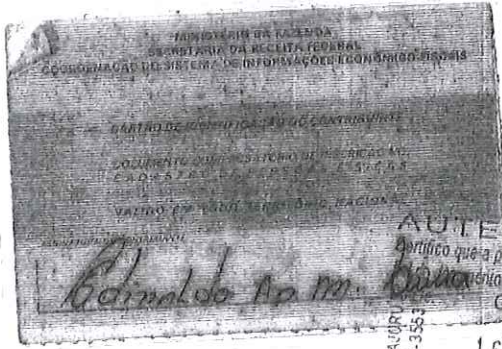 MINISTÉRIO DA FAZENDA
SECRETARIA DA RECEITA FEDERAL
COORDENAÇÃO DO SISTEMA DE INFORMAÇÕES ECONÔMICO-FISCAIS
CARTÃO DE IDENTIFICAÇÃO DO CONTRIBUINTE
DOCUMENTO COMPROBATÓRIO DE INSCRIÇÃO NO
CADASTRO DE PESSOAS FÍSICAS
VÁLIDO EM TODO TERRITÓRIO NACIONAL
AUTE
Certifico que a p
Edinaldo Ap. M.
-3553